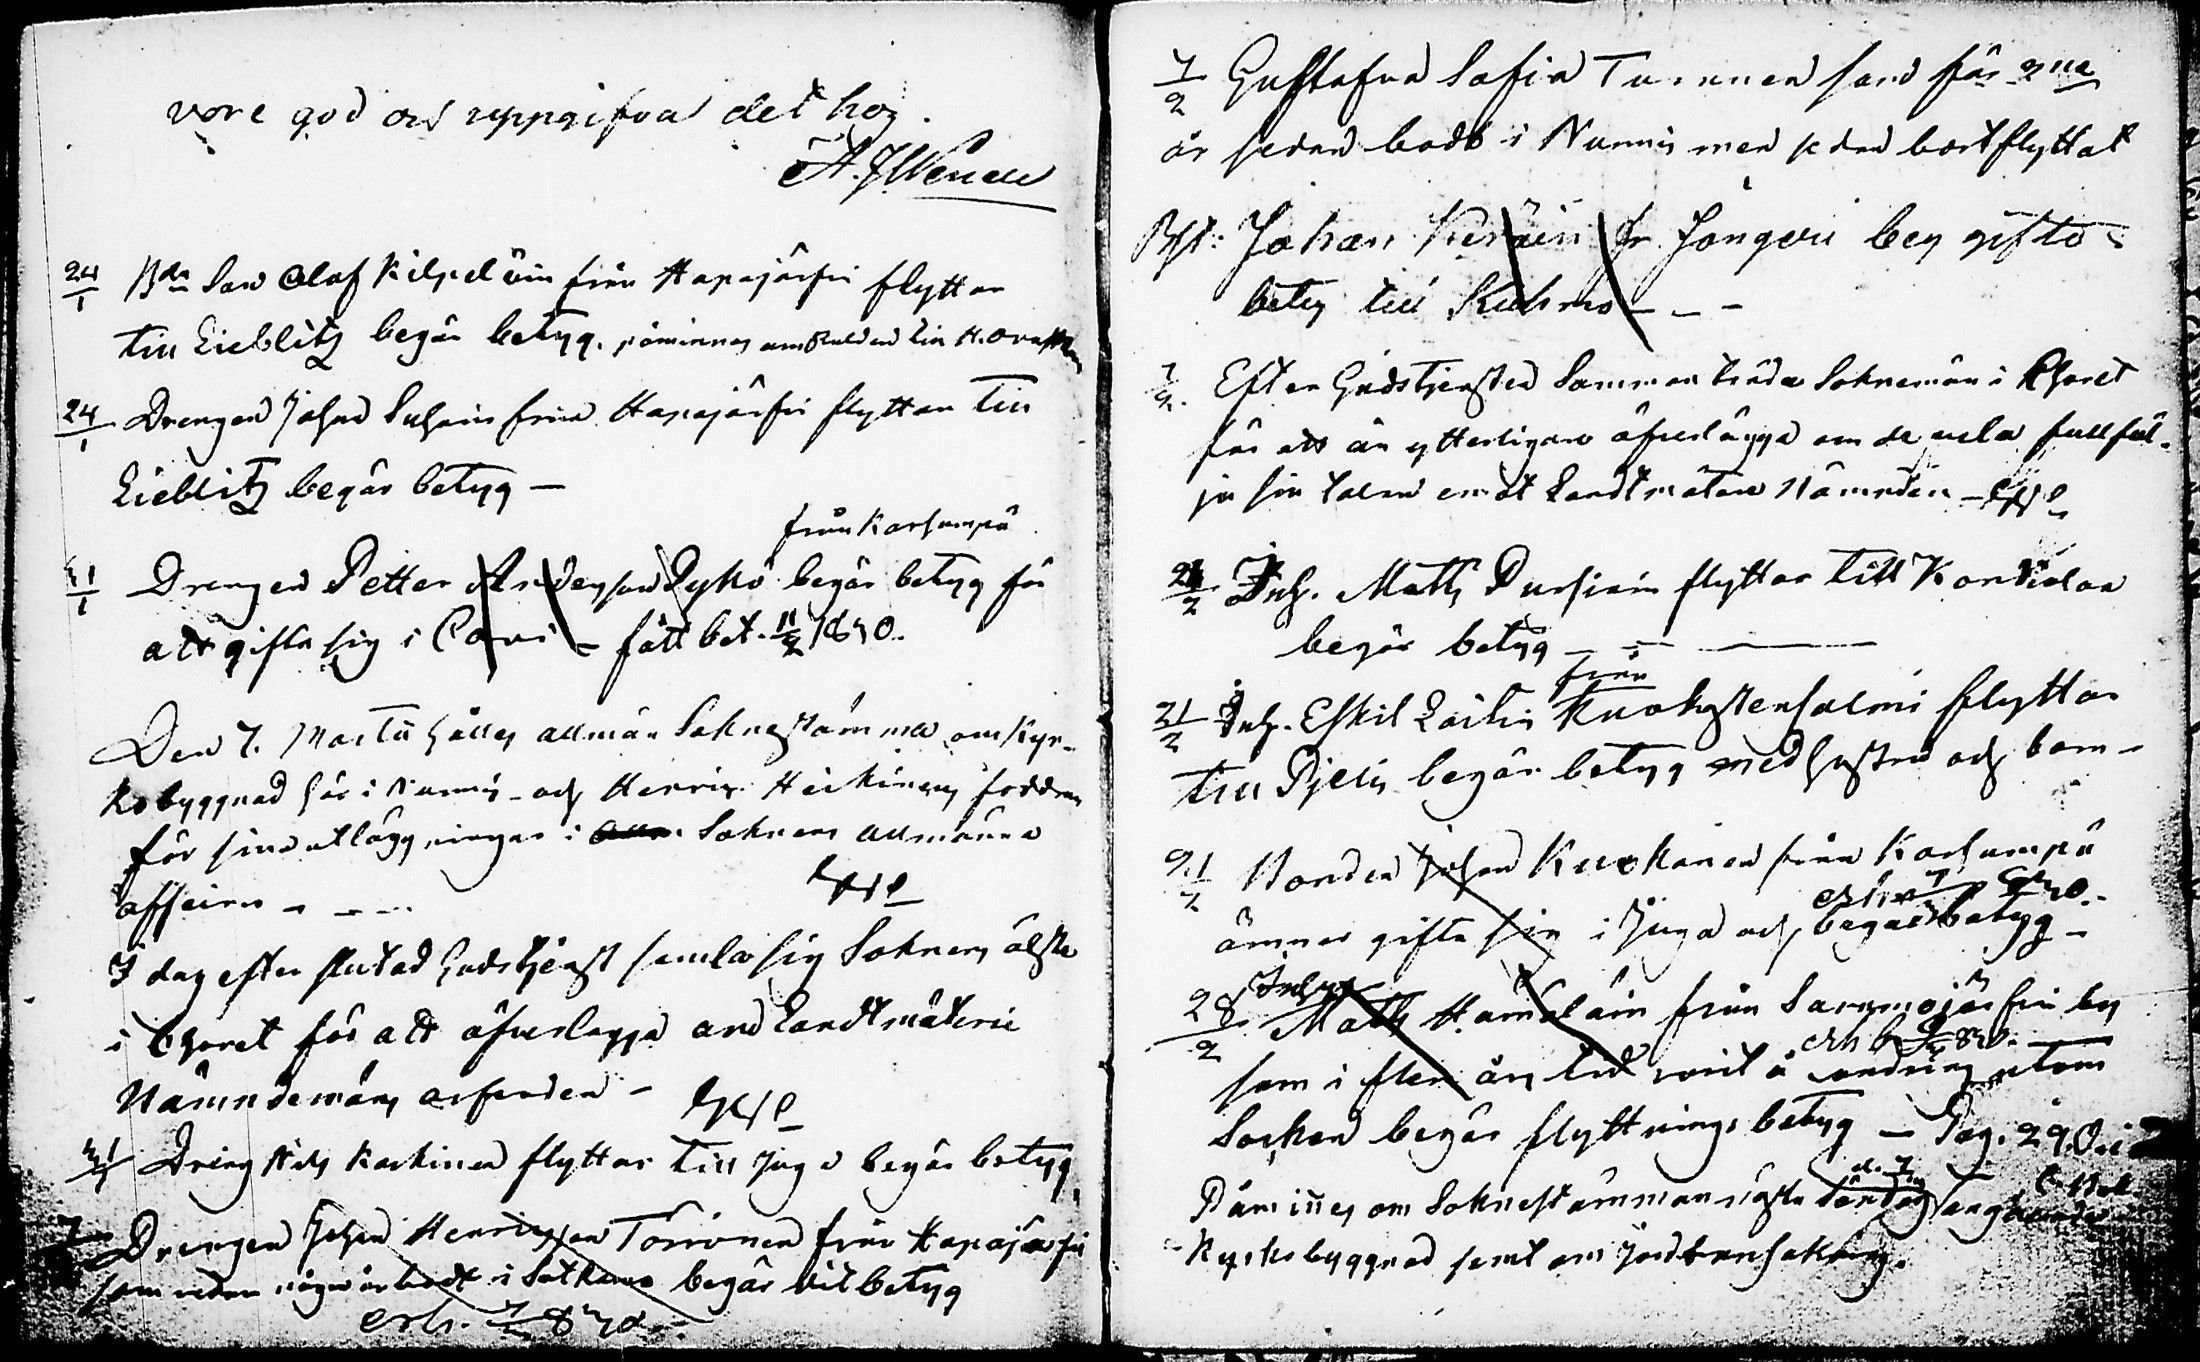 vore god och uppgifva det hoz
24/1 Bde Son Olof Kilpeläin från Hapajärfvi flyttar
till Lieblitz begär betyg. påminnes om Kulden till H.
24/1 Drengen Johan Suhoin från Hapajärfvi flyttar till
Lieblitz begär betyg —
från Karhunpä
31/1 Drengen Petter Andersson Pykö begär betyg för
att gifta sig i – fått bet. 11/2 1830.
Den 7. Martii hålles allmän Soknestämma om Kyr-
kobyggnad här i Nurmis – och Henric Heikinens fodran
för sina utläggningar i Soknens allmänna
affairer – – – –
I dag efter slutad Gudstjenst samla sig Soknens älste
i Choret för att öfverlägga om Landtmäterie
Nämndemäns arfvoden –
31/1 Dreng Nils Karkinen flyttar till Juga begär betyg
7/2 Drengen Johan Henricsson Torvinen från Hapajärfvi
som redan några år bodt i Sotkamo begär dit betyg
erh. 7/2 830.
7/2 Gustafva Sofia Turunen som för 2ne
år sedan bodt i Nurmis men sedan bortflyttat
Bst: Johan Keräin fr Jongeri beg gifto
betyg till Kuhmo – – –
7/2. Efter Gudstjensten Sammanträda Soknemän i Choret
för att än ytterligare öfverlägga om de vela fullföl-
ja sin talan emot Landtmätare Nämnden –
21/2 Inh. Matts Pursiain flyttar till Kontiolax
begär betyg – – —
från
21/2 Inh. Eskil Laitin Kuokstensalmi flyttar
till Pjelis begär betyg med hustru och barn –
21/2 Bonden Johan Kuokanen från Karhunpä
erh 7/3 830.
ämnar gifta sig i Juga och begär betyg –
Inhys
28/2 Matts Hämäläin från Saramojärfvi by
erh b 830.
som i flere års tid varit å vandring utom
Socken begär flyttnings betyg — Pag. 290.
Påminnes om Soknestämman nästa Söndag d. 7
Kyrkobyggnad samt om jordransakning.